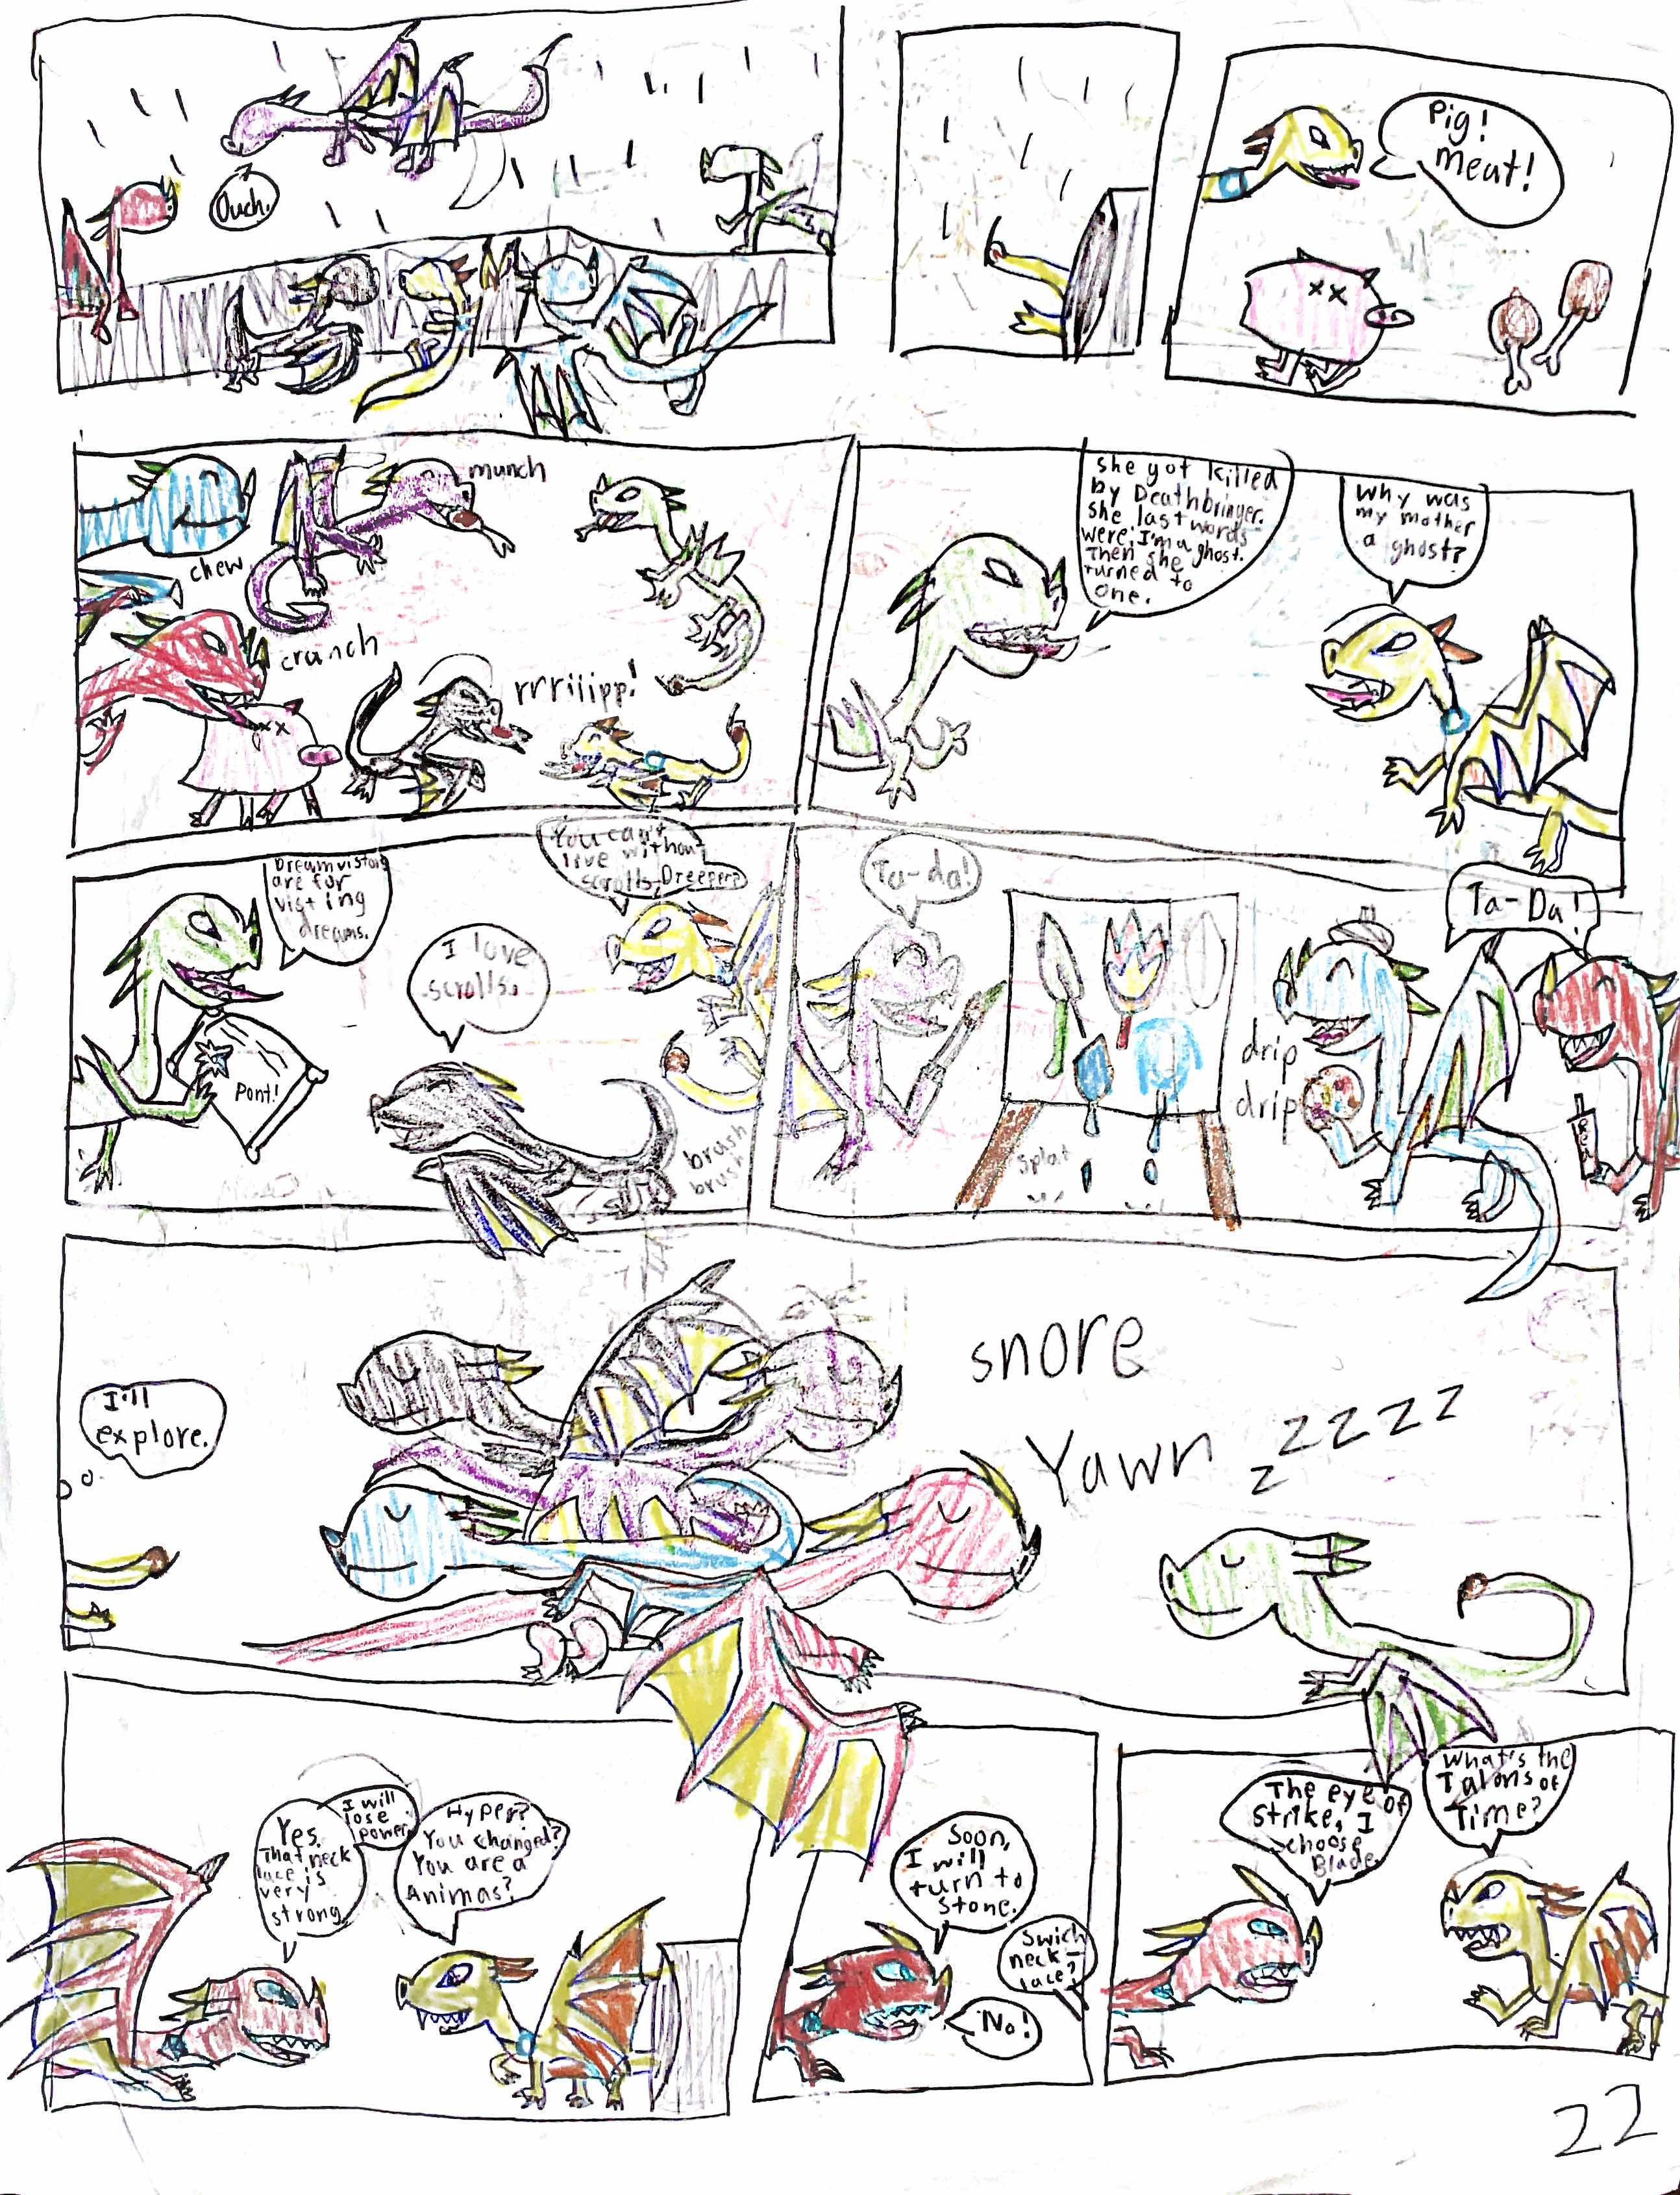 Ouch.
Pig!
meat!
munch
chew
crunch
rrriiipp!
she got killed
by Deathbringer.
she last words
were: I'm a ghost.
Then she
turned to
one.
Why was
my mother
a ghost?
Dreamvistors
are for
visting
dreams.
Pont!
I love
scrolls.
You can't
live without
scrolls, Dreeper?
brush
brush
Ta-da!
splat
drip
drip
Ta-Da!
I'll
explore.
snore
Yawn
zzzzz
Yes.
That neck
lace is
very
strong.
I will
lose
power.
Hyper?
You changed?
You are a
Animas?
Soon,
I will
turn to
stone.
Swich
neck-
lace?
No!
The eye of
Strike, I
choose
Blade.
What's the
Talons of
Time?
22